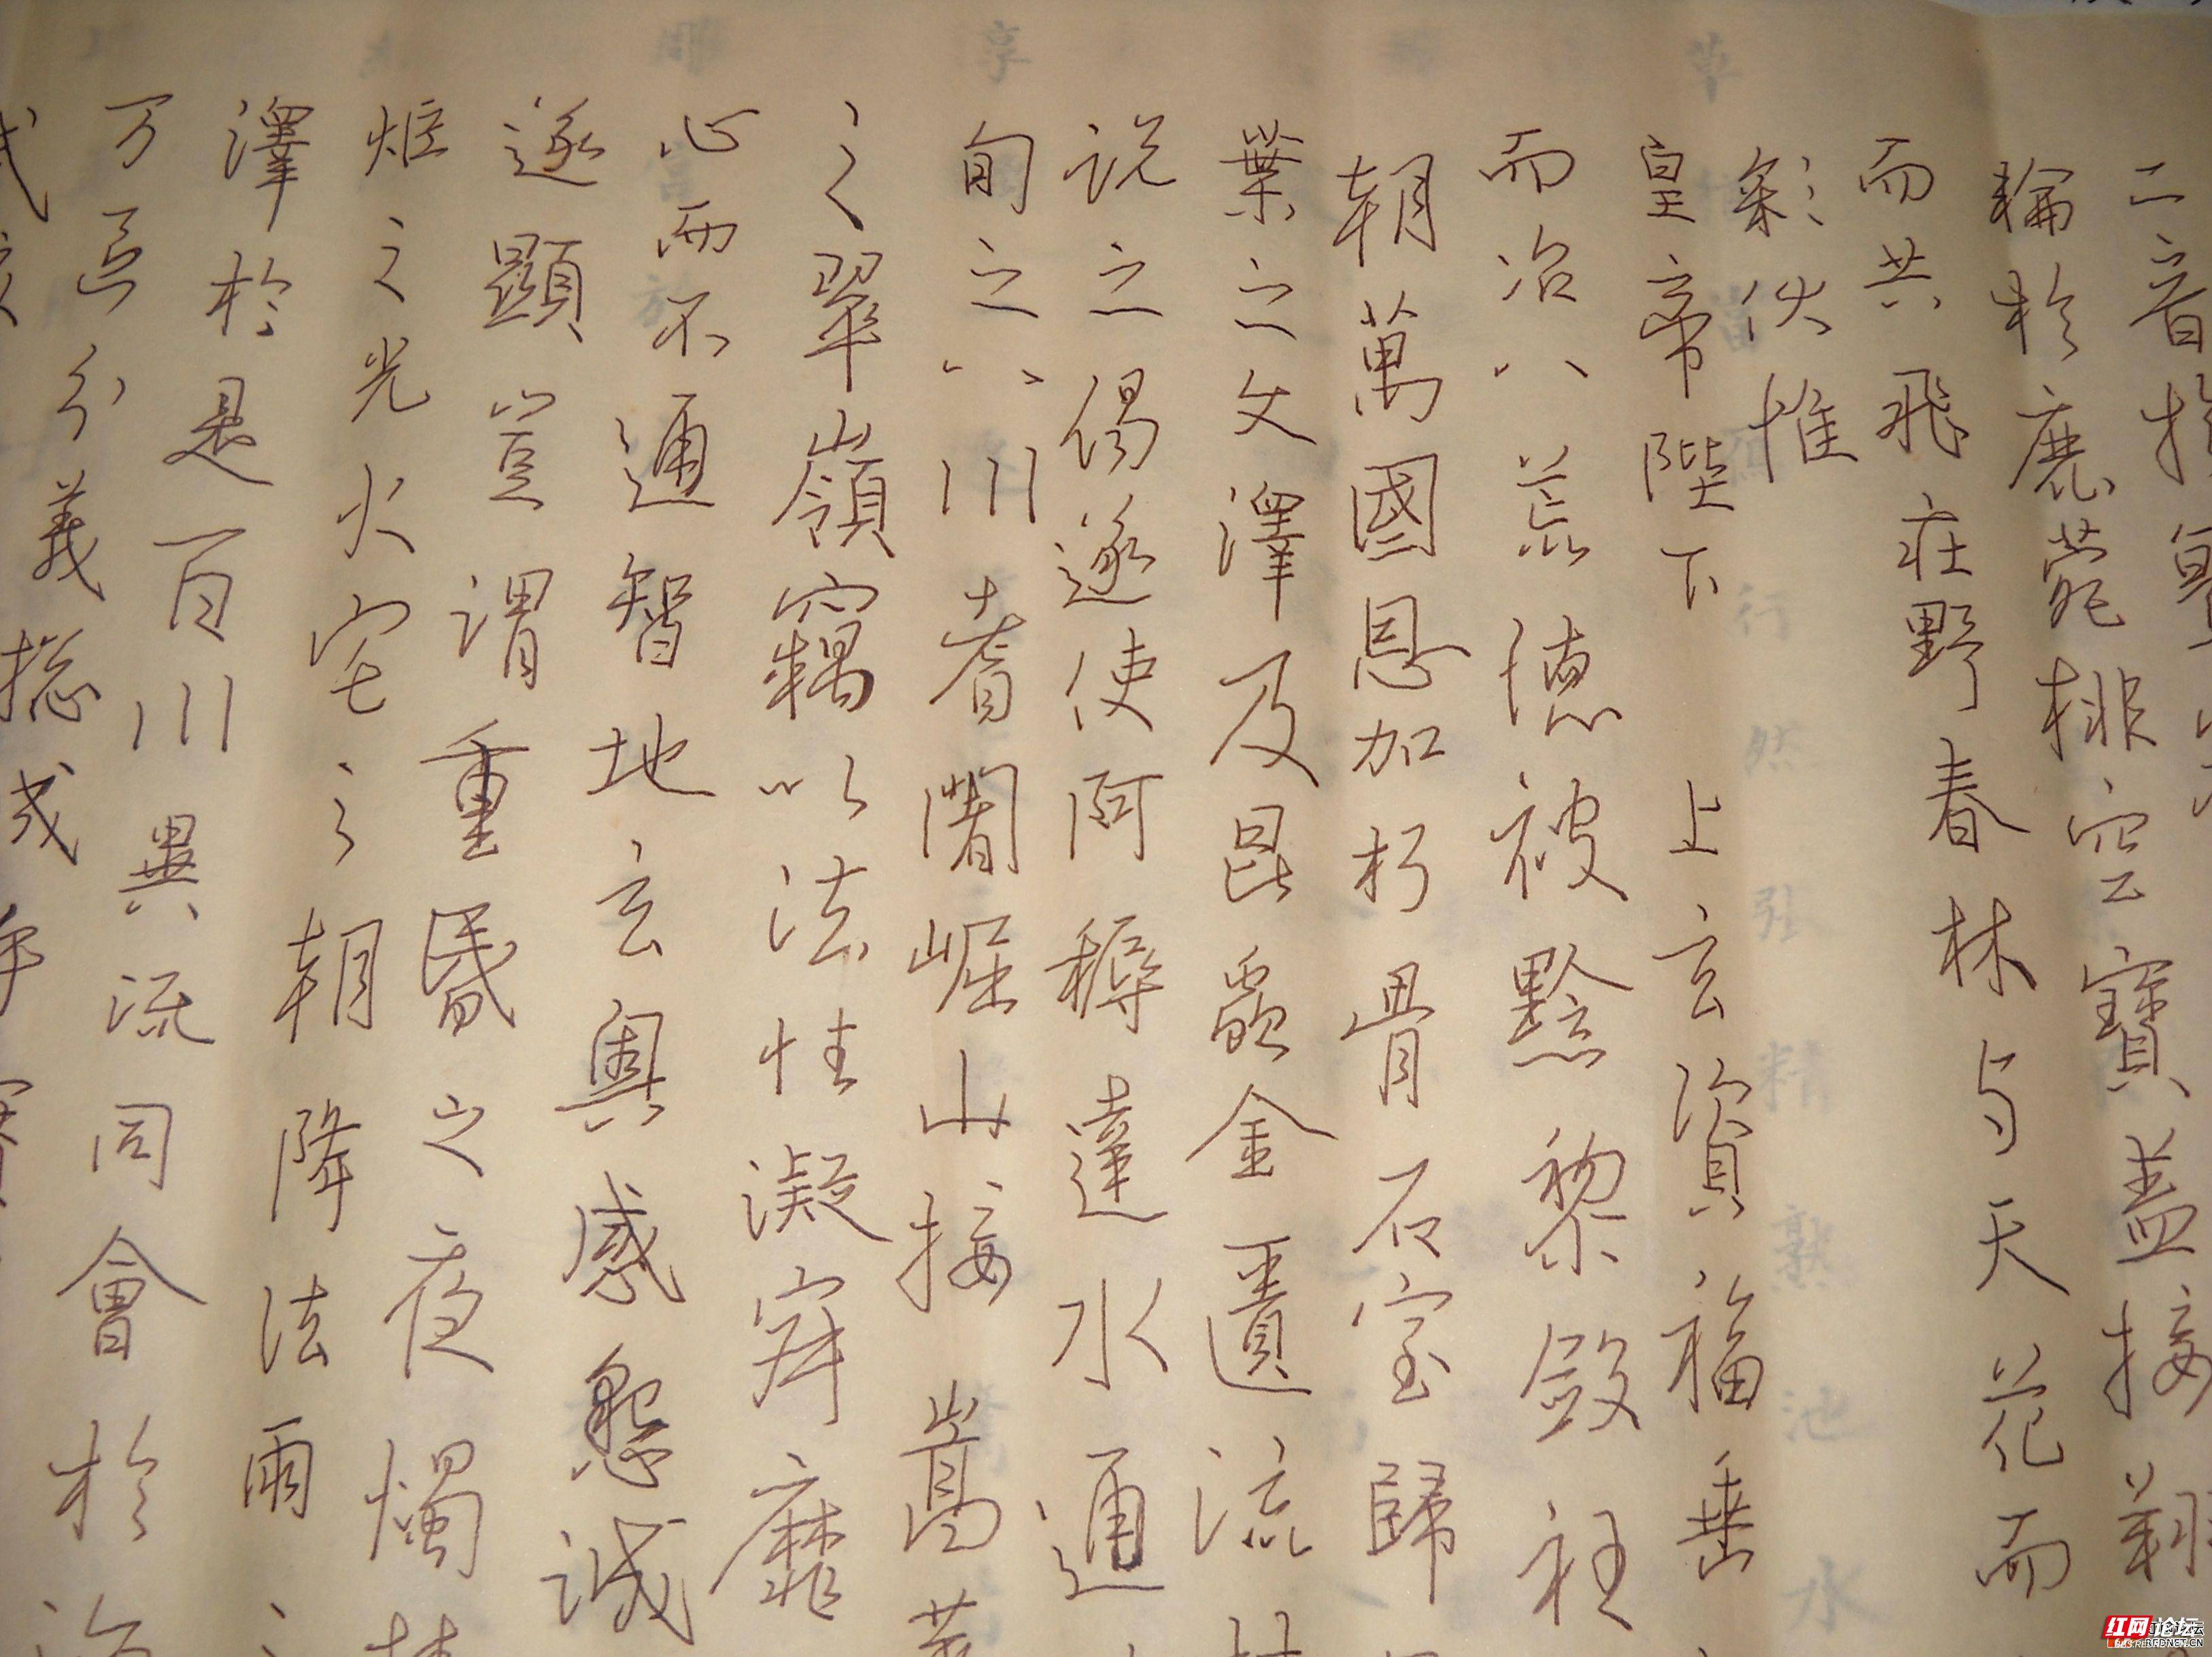 二音於鷲
輪於鹿苑排空寶盖接翔
而共飛莊野春林与天花而
彩伏惟
皇帝陛下 上玄資福垂
而治八荒德被黔黎斂衽
朝萬國恩加朽骨石室歸
葉之文澤及昆蟲金匱流
説之偈遂使阿耨達水通
甸之八川耆闍崛山接嵩華
之翠嶺竊以法性凝寂靡
心而不通智地玄奧感懇誠
遂顯豈謂重昏之夜燭
炬之光火宅之朝降法雨之
澤於是百川異流同會於海
万區分義揔成乎實
武校
红网论坛
BBS.REDNET.CN